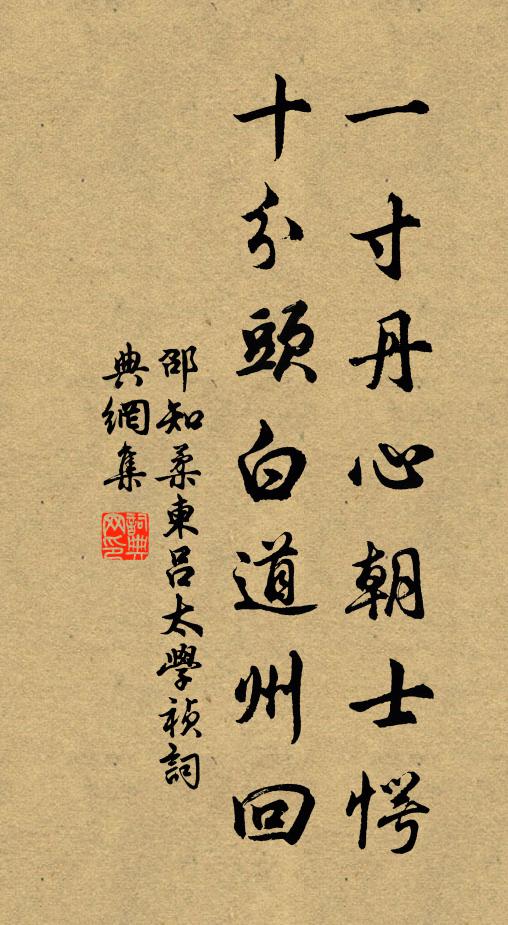 一寸丹心朝士愕
十分頭白道州回
邵知柔東呂太學禎詞
典網集
詞典網印